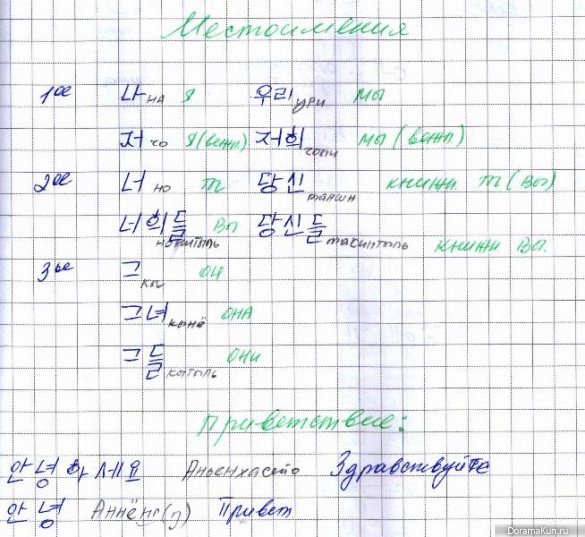 Местоимения
1ое 나 на я 우리 ури мы
저 чо я (вежл) 저희 чохи мы (вежл)
2ое 너 но ты 당신 тансин книжн ты (Вы)
너희들 нохитыль Вы 당신들 тасинтыль книжн Вы.
3ье 그 кы он
그녀 кынё она
그들 катыль они
Приветствие:
안녕하세요 Здравствуйте
안녕 Аннёнг(н) Привет
DoramaKun.ru